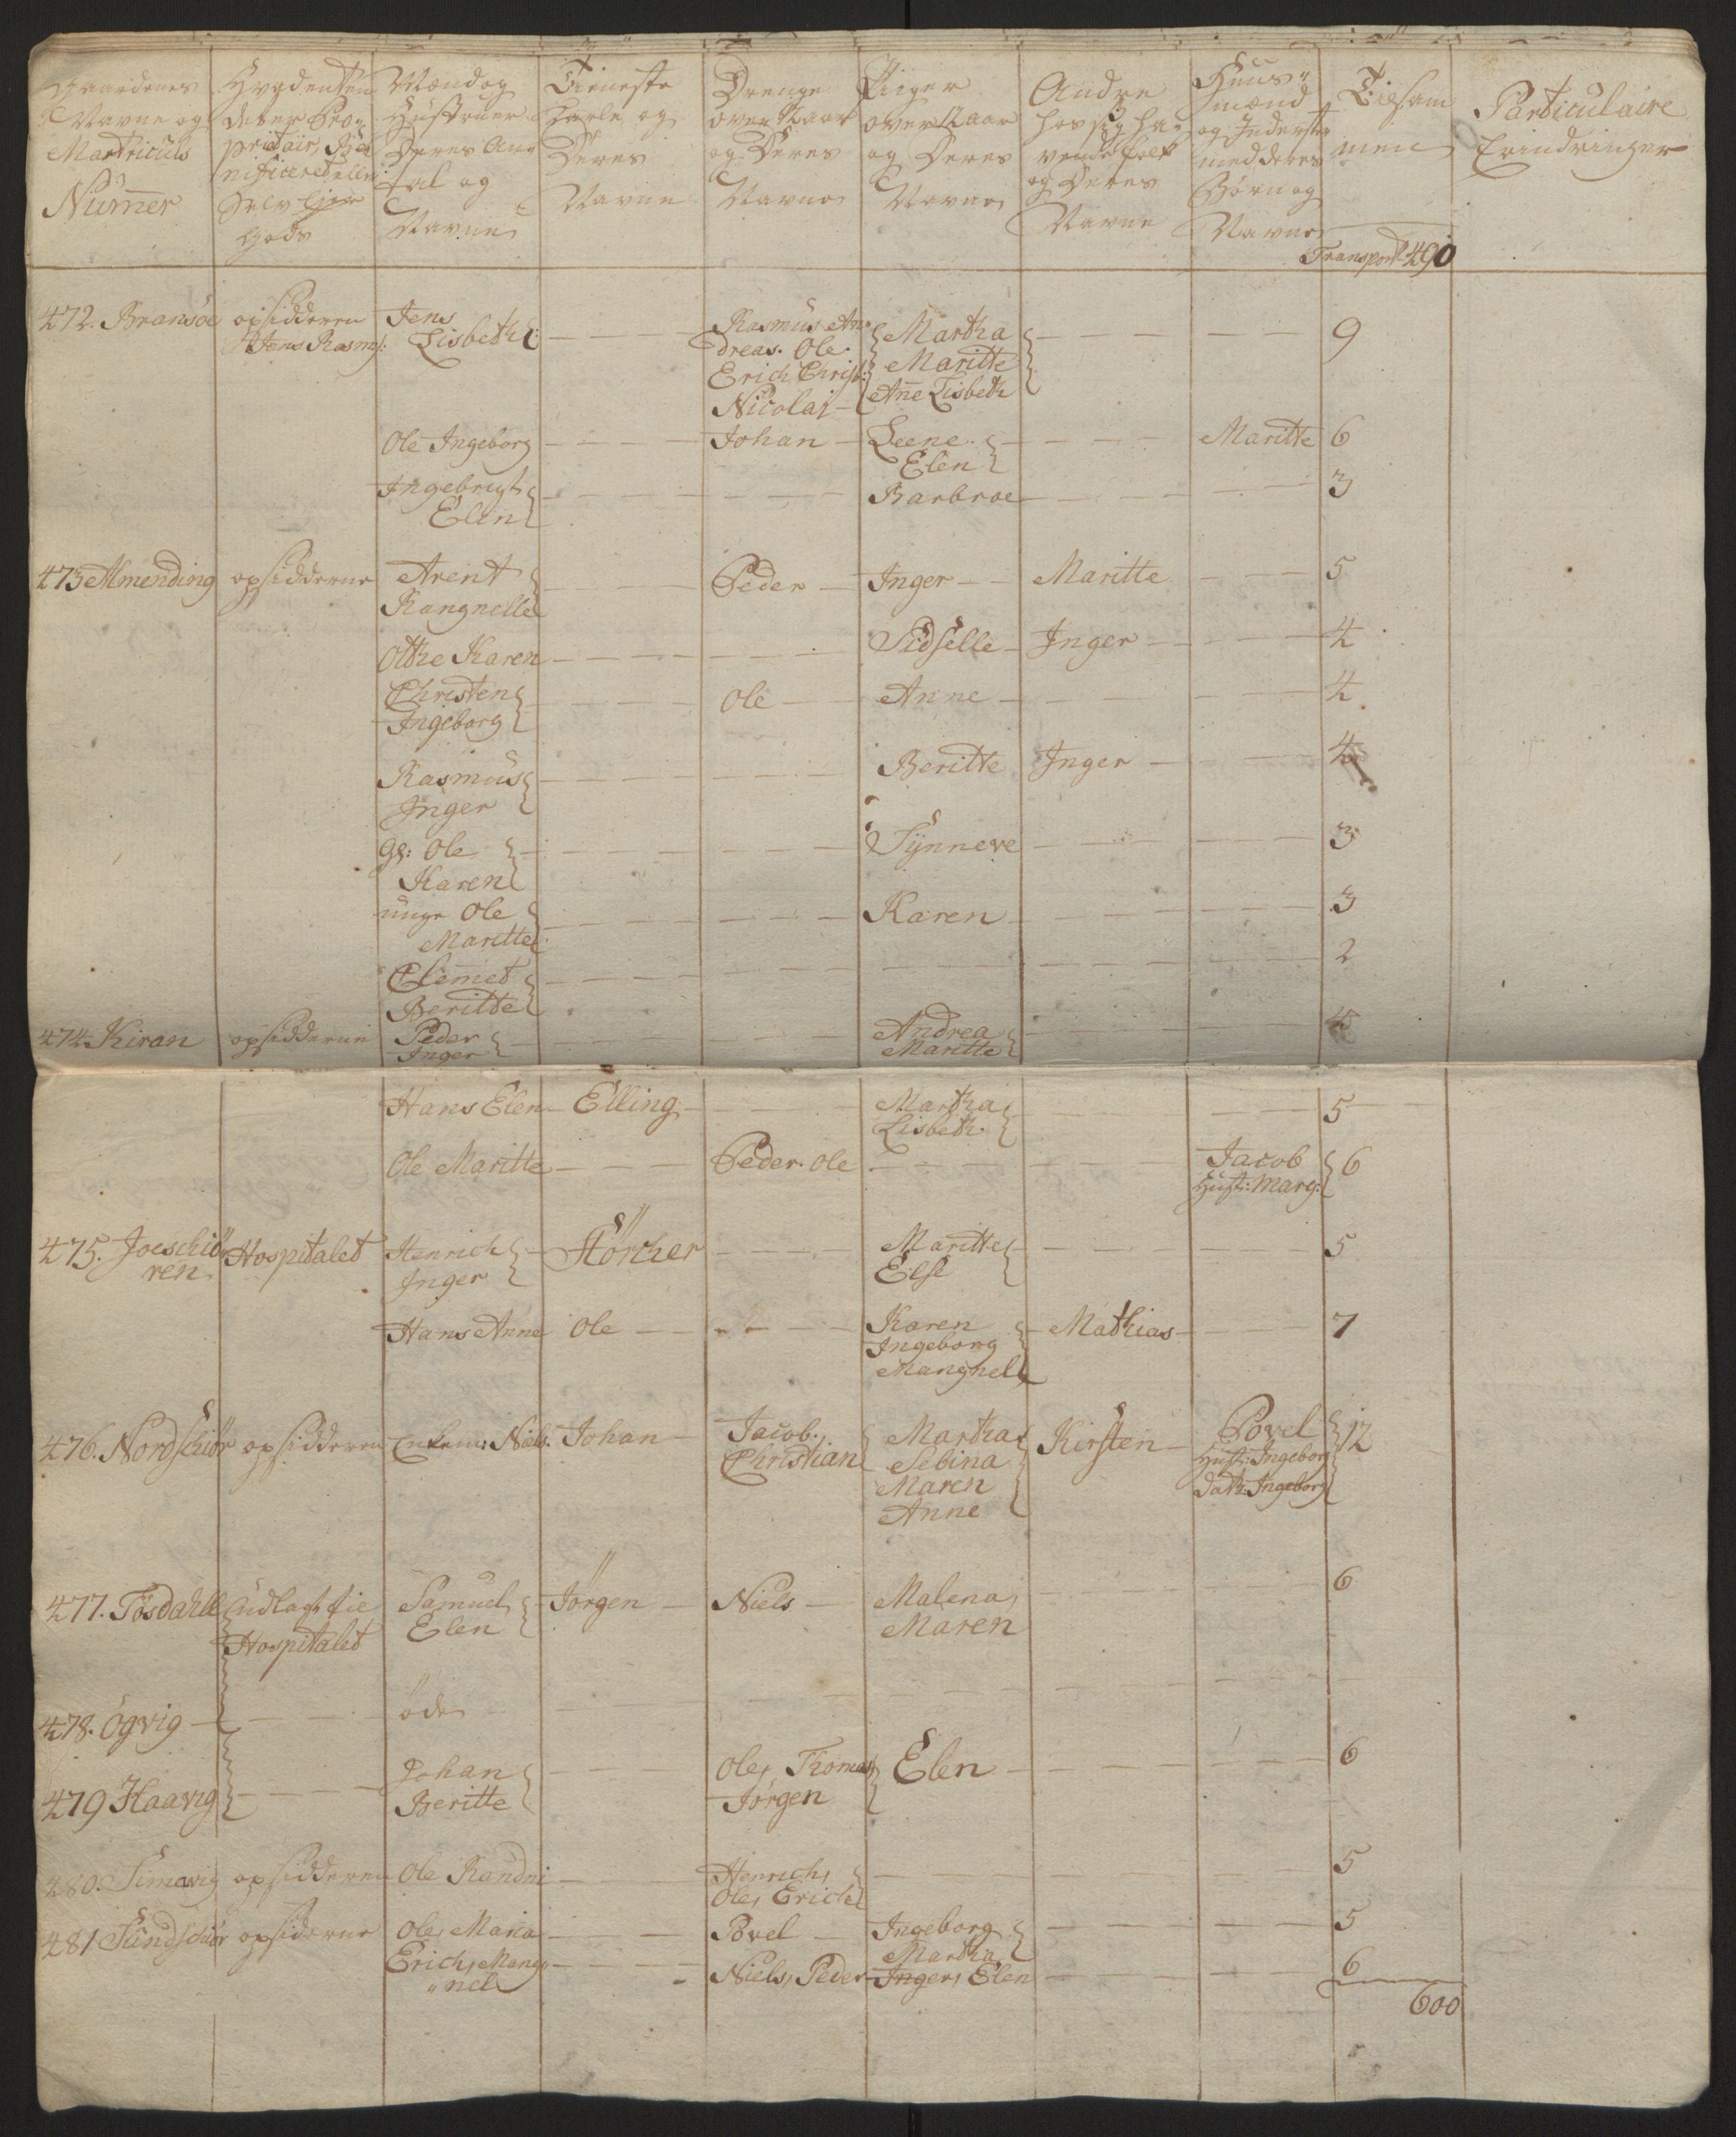 Gaardenes Navne og Martriculs Nummer
Hvad enten det er Proprietair, Beneficeret eller Selv Eier Gods
Mænd og Hustruer Deres Antal og Navne
Tieneste Karle og Deres Navne
Drenge over 12 aar og Deres Navne
Piiger over 12 aar og Deres Navne
Andre hos sig havende folk og Deres Navne
Huusmænd og Inderster med deres Børn og Navne
Tilsammen
Particulaire Erindringer
Transport 490
472. Bransøe opsidderen Jens Rasms: Jens Lisbeth Rasmus Andreas. Ole. Erich Christ: Nicolai Martha Maritte Anne Lisbeth 9
Ole Ingeborg Johan Leene Elen Maritte 6
Ingebrigt Elen Barbroe 3
473 Almending opsidderne Arent Rangnelle Peder Inger Maritte 5
Othe Karen Sidselle Inger 4
Christen Ingeborg Ole Anne 4
Rasmus Inger Beritte Inger 4
Gl: Ole Karen Synneve 3
unge Ole Maritte Karen 3
Clemet Beritte 2
474. Kiran opsidderne Peder Inger Andrea Maritte 4
Hans Elen Elling Martha Lisbeth 5
Ole Maritte Peder. Ole Jacob Hust: Marg: 6
475. Joeschiören Hospitalet Henrich Inger Störcher Maritte Else 5
Hans Anne Ole Karen Ingeborg Mangnell Mathias 7
476. Nordschiör opsidderen Enkem: Niels. Johan Jacob. Christian Martha Sebina Maren Anne Kirsten Povel Hust: Ingeborg Datt: Ingeborg 12
477. Tösdahll Udlagt fie Hospitalet Samuel Elen Jörgen Niels Malena Maren 6
478. Ögvig öde
479 Haavig Johan Beritte Ole, Thomas Jörgen Elen 6
480. Simavig opsidderen Ole Randni Henrich, Ole, Erich 5
481 Sundschiör opsiderne Ole, Maria Povel Ingeborg Martha 5
Erich, Mang„ „nel Niels, Peder Inger, Elen 6
600